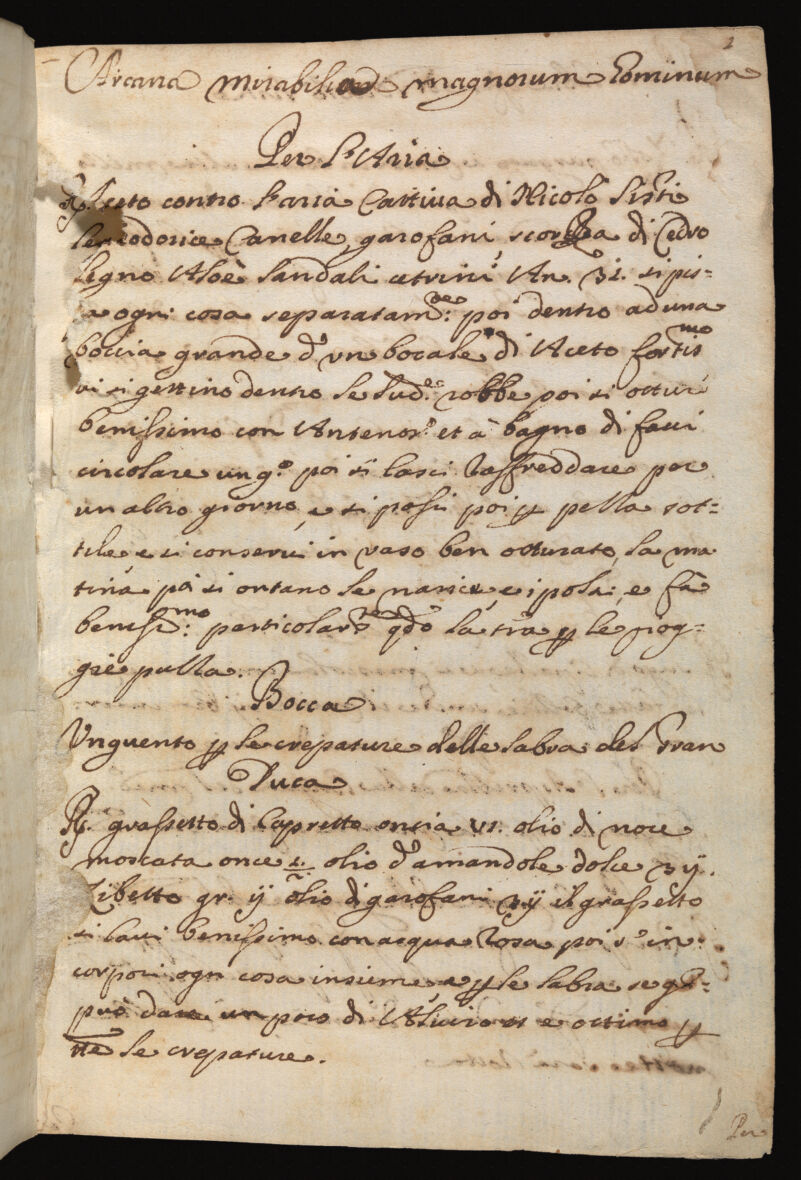 1
Arcana mirabilia magnorum hominum
Per l'Aria
Aceto contro l'aria Cattiva di Nicolo Sisti
odorice Canelle, garofani, scorza di Cedro
legno Aloè sandali citrini An. ʒi. si pis=
a ogni cosa separatam.te: poi dentro ad una
boccia grande d'un bocale di Aceto fortis.mo
vi si gettino dentro le sud.e robbe poi si otturi
benissimo con et à bagno di faui
circolare un g.o poi si lasci raffreddare per
un altro giorno, e si passi poi ꝑ pella sot=
tile e si conservi in vaso ben otturato, la ma
tina poi si ontano le narici, e i polsi, e fà
beniss.mo: particolar.te q.do la ꝑ le piog=
gie
Bocca
Unguento ꝑ le crepature delle labra del Gran
Duca
R. grassetto di Capretto onsia vi. olio di noce
moscata once olio d'amandole dolce ʒ ij.
Zibetto gr. ij olio di garofani ʒ ij il grassetto
si lavi benissimo con acqua rosa poi s'in=
corpori ogni cosa insieme, e ꝑ le labra se gli
può dare un poco di e ottimo ꝑ
tte le crepature.
Per